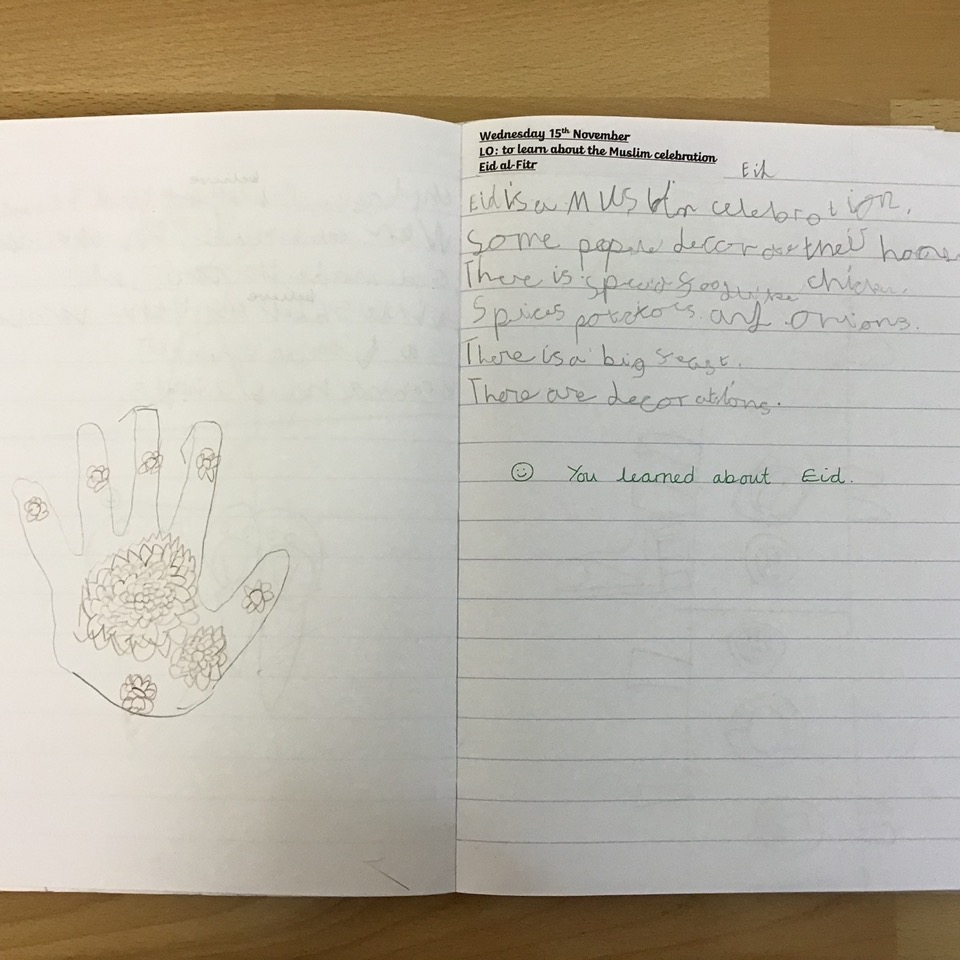 Wednesday 15th November
LO: to learn about the Muslim celebration
Eid al-Fitr
Eid
Eid is a Muslim celebration.
Some people decorate their
There is food like chicken.
Spices potatoes and onions.
There is a big feast.
There are decorations.
☺ You learned about Eid.
believe
believe